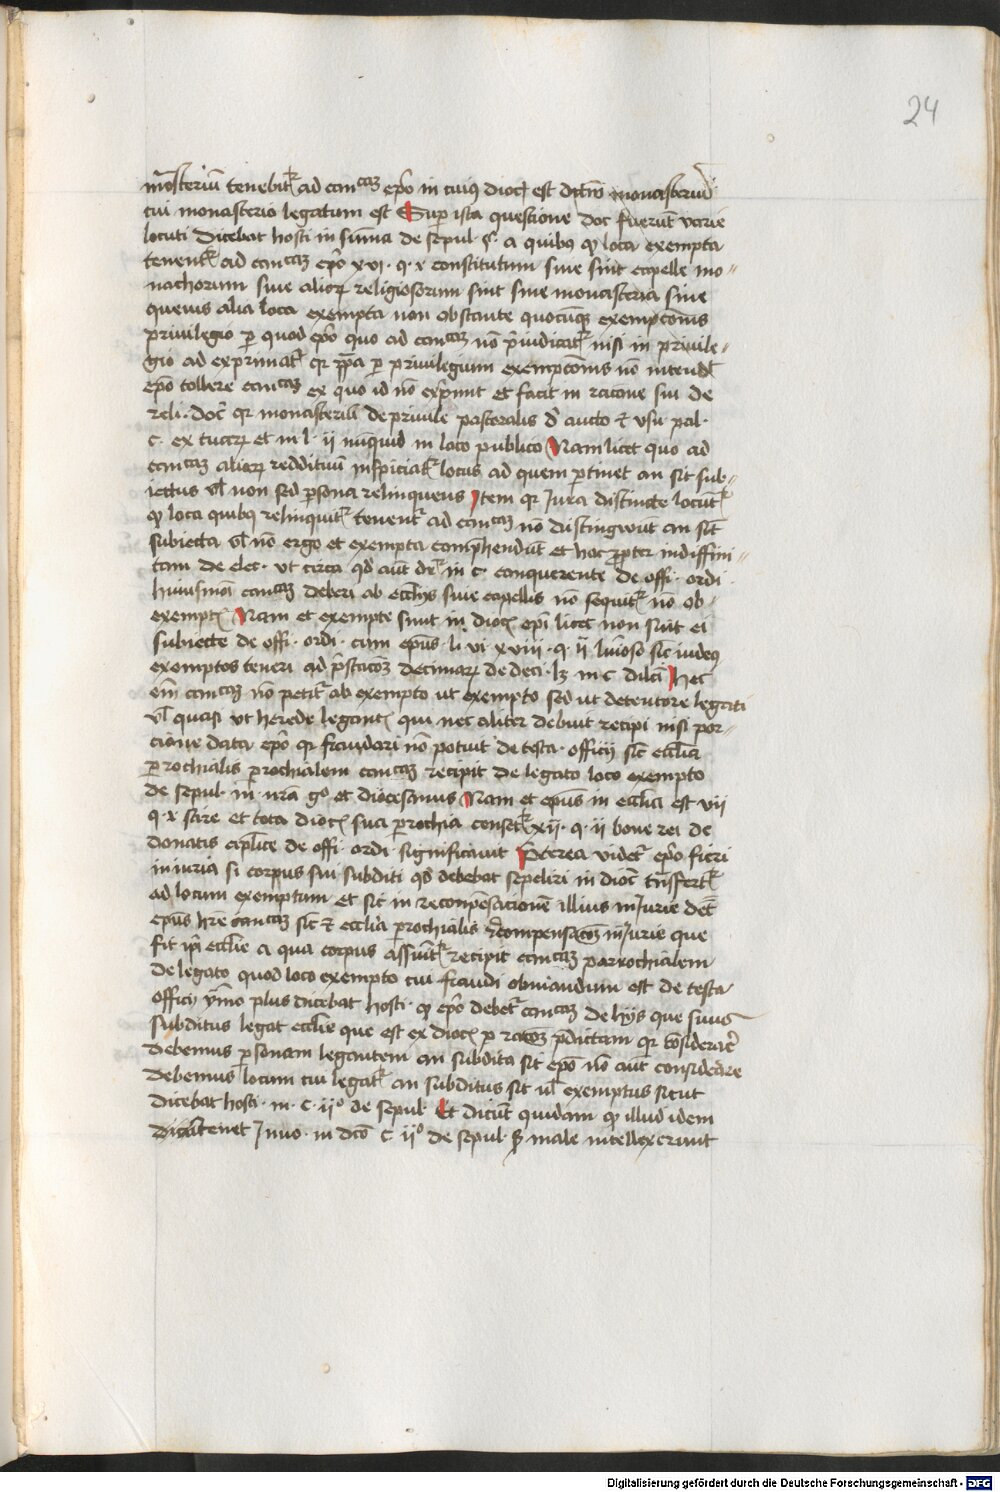 24
mōsteriū tenebit᷑ ad canᶜᵃᵐ ep̄o in cuiꝰ dioc̄ est dictū monasteriū
cui monasterio legatum est Sup̄ ista questione doc̄ fuerūt varie
locuti dicebat hosti in sūma de sepul · §· a quibꝫ ꝙ loca exempta
tenent᷑ ad canᶜᵃᵐ ep̄o xvi · q · x constitutum siue sint capelle mo〃
nachorum siue alioꝝ religiosorum sint siue monasteria siue
queuis alia loca exempta non obstante quocūqꝫ exempcōnis
priuilegio ꝑ quod ep̄o quo ad canᶜᵃᵐ nō p̄iudicat᷑ nisi in priuile〃
gio ad exprimat᷑ qr p̄pa ꝑ priuilegium exempcōnis nō intendᷣ
ep̄o tollere canᶜᵃᵐ ex quo id nō exp̄mit Et facit in racōne sui de
reli · doc̄ qr monasteriū de priuile pastoralis d̄ aucto ⁊ vsu pal ·
c · ex tucꝝ et in l · ii nūquid in loco publico Nam licet quo ad
canᶜᵃᵐ alioꝝ reddituū inspiciat᷑ locus ad quem ꝑtinet an sit sub〃
iectus vl̄ non sed ꝑsona relinquens Item qr Jura distincte locūt᷑
ꝙ loca quibꝫ relinquit᷑ tenent᷑ ad canᶜᵃᵐ nō distingwūt an sīt
subiecta vl̄ nō ergo et exempta comp̄hendūt et hoc ꝓpter indiffini〃
tam de elec · vt circa qd̄ aūt dr̄ in c · conquerente de offi · ordi ·
huiusmōi canᶜᵃᵐ deberi ab ecclīis siue capellis nō sequit᷑ nō ob〃
exempt̄ Nam et exempte sunt in dioc̄ ep̄i licet non sint ei
subiecte de offi · ordi · cum ep̄us · li · vi · xviii · q · ii luīoso sic iudeꝰ
exemptos teneri ad p̄stacōꝫ decimaꝝ de deci · lꝫ in c dilcī Hec
em̄ canᶜᵃᵐ nō petit᷑ ab exempto ut exempto sed ut detentore legati
vl̄ quasi vt herede legant̄ qui nec aliter debuit recipi nisi por〃
cione data ep̄o qr fraudari nō potuit de testa · officij sic ecclīa
ꝑrochialis ꝑrochialem canᶜᵃᵐ recipit de legato loco exempto
de sepul · in nr̄a gᵒ et diocesanus Nam et ep̄us in ecclīa est vii
q · x scire et tota dioc̄ sua ꝑrochia censet᷑ xij · q · ii bone rei de
donatis cip̄lice de offi · ordi · significauit P̄terea videt᷑ ep̄o fieri
iniuria si corpus sui subditi qd̄ debebat sepeliri in dioc̄ tn̄sfert᷑
ad locum exemptum et sic in reconpensacionē illius inJurie debꝫ
ep̄us hr̄e canᶜᵃᵐ sic ⁊ ecclīa ꝑrochialis recompensacōꝫ inJurie que
fit ip̄i ecclīe a qua corpus assūit᷑ recipit canᶜᵃᵐ parrochialem
de legato quod loco exempto cui fraudi obuiandum est de testa
offici ymo plus dicebat hosti · ꝙ ep̄o debet᷑ canᶜᵃᵐ de hijs que suus
subditus legat ecclīe que est ex dioc̄ ꝑ racōꝫ p̄dictam qr cōsiderar̄
debemus ꝑsonam legantem an subdita sit ep̄o nō aūt considerare
debemus locum cui legat᷑ an subditus sit vl̄ exemptus sicut
dicebat hosti · in · c · ijᵒ de sepul · Et dicūt quidam ꝙ illud idem
tenet Jnno · in dcō c · ijᵒ de sepul · sꝫ male intellexerunt
Digitalisierung gefördert durch die Deutsche Forschungsgemeinschaft - DFG